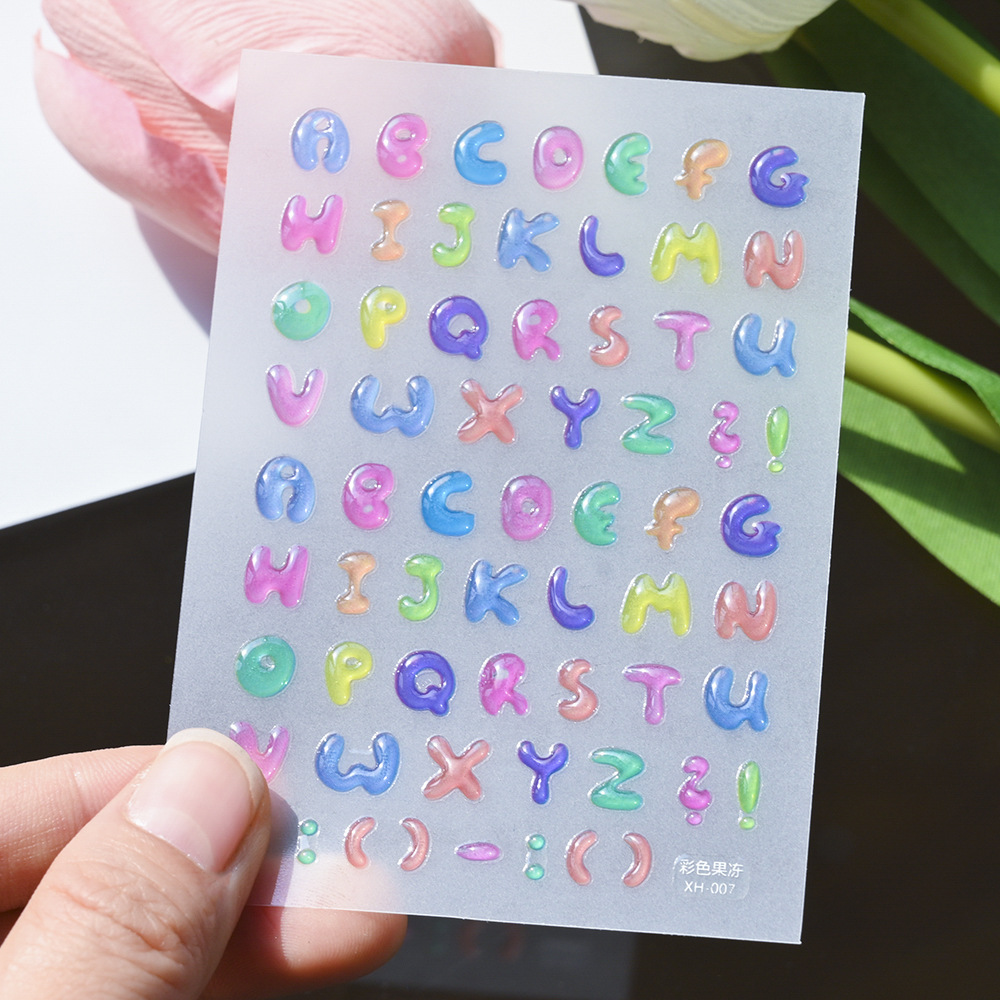 A B C D E F G
H I J K L M N
O P Q R S T U
V W X Y Z ? !
A B C D E F G
H I J K L M N
O P Q R S T U
V W X Y Z ? !
: ( ) - : ( )
彩色果冻
XH-007